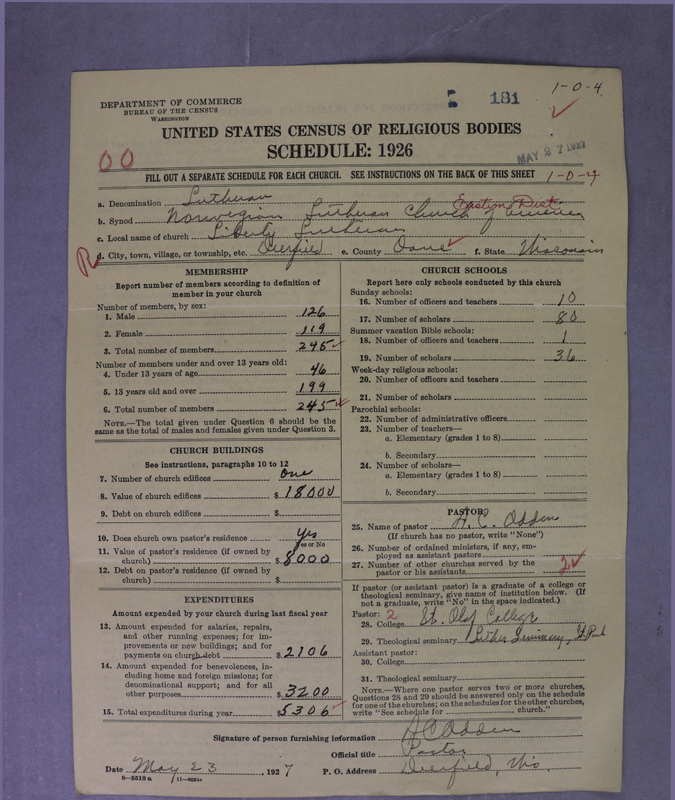 DEPARTMENT OF COMMERCE
BUREAU OF THE CENSUS
WASHINGTON
181
1-0-4
UNITED STATES CENSUS OF RELIGIOUS BODIES
SCHEDULE: 1926
MAY 27 1927
00
FILL OUT A SEPARATE SCHEDULE FOR EACH CHURCH. SEE INSTRUCTIONS ON THE BACK OF THIS SHEET
1-0-4
a. Denomination Lutheran
Eastern Dist.
b. Synod Norwegian Lutheran Church of America
c. Local name of church Liberty Lutheran
R
d. City, town, village, or township, etc. Deerfield e. County Dane f. State Wisconsin
MEMBERSHIP
Report number of members according to definition of member in your church
Number of members, by sex:
1. Male 126
2. Female 119
3. Total number of members 245
Number of members under and over 13 years old:
4. Under 13 years of age 46
5. 13 years old and over 199
6. Total number of members 245
NOTE.—The total given under Question 6 should be the same as the total of males and females given under Question 3.
CHURCH BUILDINGS
See instructions, paragraphs 10 to 12
7. Number of church edifices One
8. Value of church edifices $18000
9. Debt on church edifices $
10. Does church own pastor's residence Yes
Yes or No
11. Value of pastor's residence (if owned by church) $8000
12. Debt on pastor's residence (if owned by church) $
EXPENDITURES
Amount expended by your church during last fiscal year
13. Amount expended for salaries, repairs, and other running expenses; for improvements or new buildings; and for payments on church debt $2106
14. Amount expended for benevolences, including home and foreign missions; for denominational support; and for all other purposes $3200
15. Total expenditures during year $5306
CHURCH SCHOOLS
Report here only schools conducted by this church
Sunday schools:
16. Number of officers and teachers 10
17. Number of scholars 80
Summer vacation Bible schools:
18. Number of officers and teachers 1
19. Number of scholars 36
Week-day religious schools:
20. Number of officers and teachers
21. Number of scholars
Parochial schools:
22. Number of administrative officers
23. Number of teachers—
a. Elementary (grades 1 to 8)
b. Secondary
24. Number of scholars—
a. Elementary (grades 1 to 8)
b. Secondary
PASTOR
25. Name of pastor A. C. Odden
(If church has no pastor, write "None")
26. Number of ordained ministers, if any, employed as assistant pastors
27. Number of other churches served by the pastor or his assistants 2
If pastor (or assistant pastor) is a graduate of a college or theological seminary, give name of institution below. (If not a graduate, write "No" in the space indicated.)
Pastor: 2
28. College St. Olaf College
29. Theological seminary Luther Seminary, St Paul
Assistant pastor:
30. College
31. Theological seminary
NOTE.—Where one pastor serves two or more churches, Questions 28 and 29 should be answered only on the schedule for one of the churches; on the schedules for the other churches, write "See schedule for church."
Signature of person furnishing information A C Odden
Official title Pastor
Date May 23, 1927 P. O. Address Deerfield, Wis.
8—5518 a